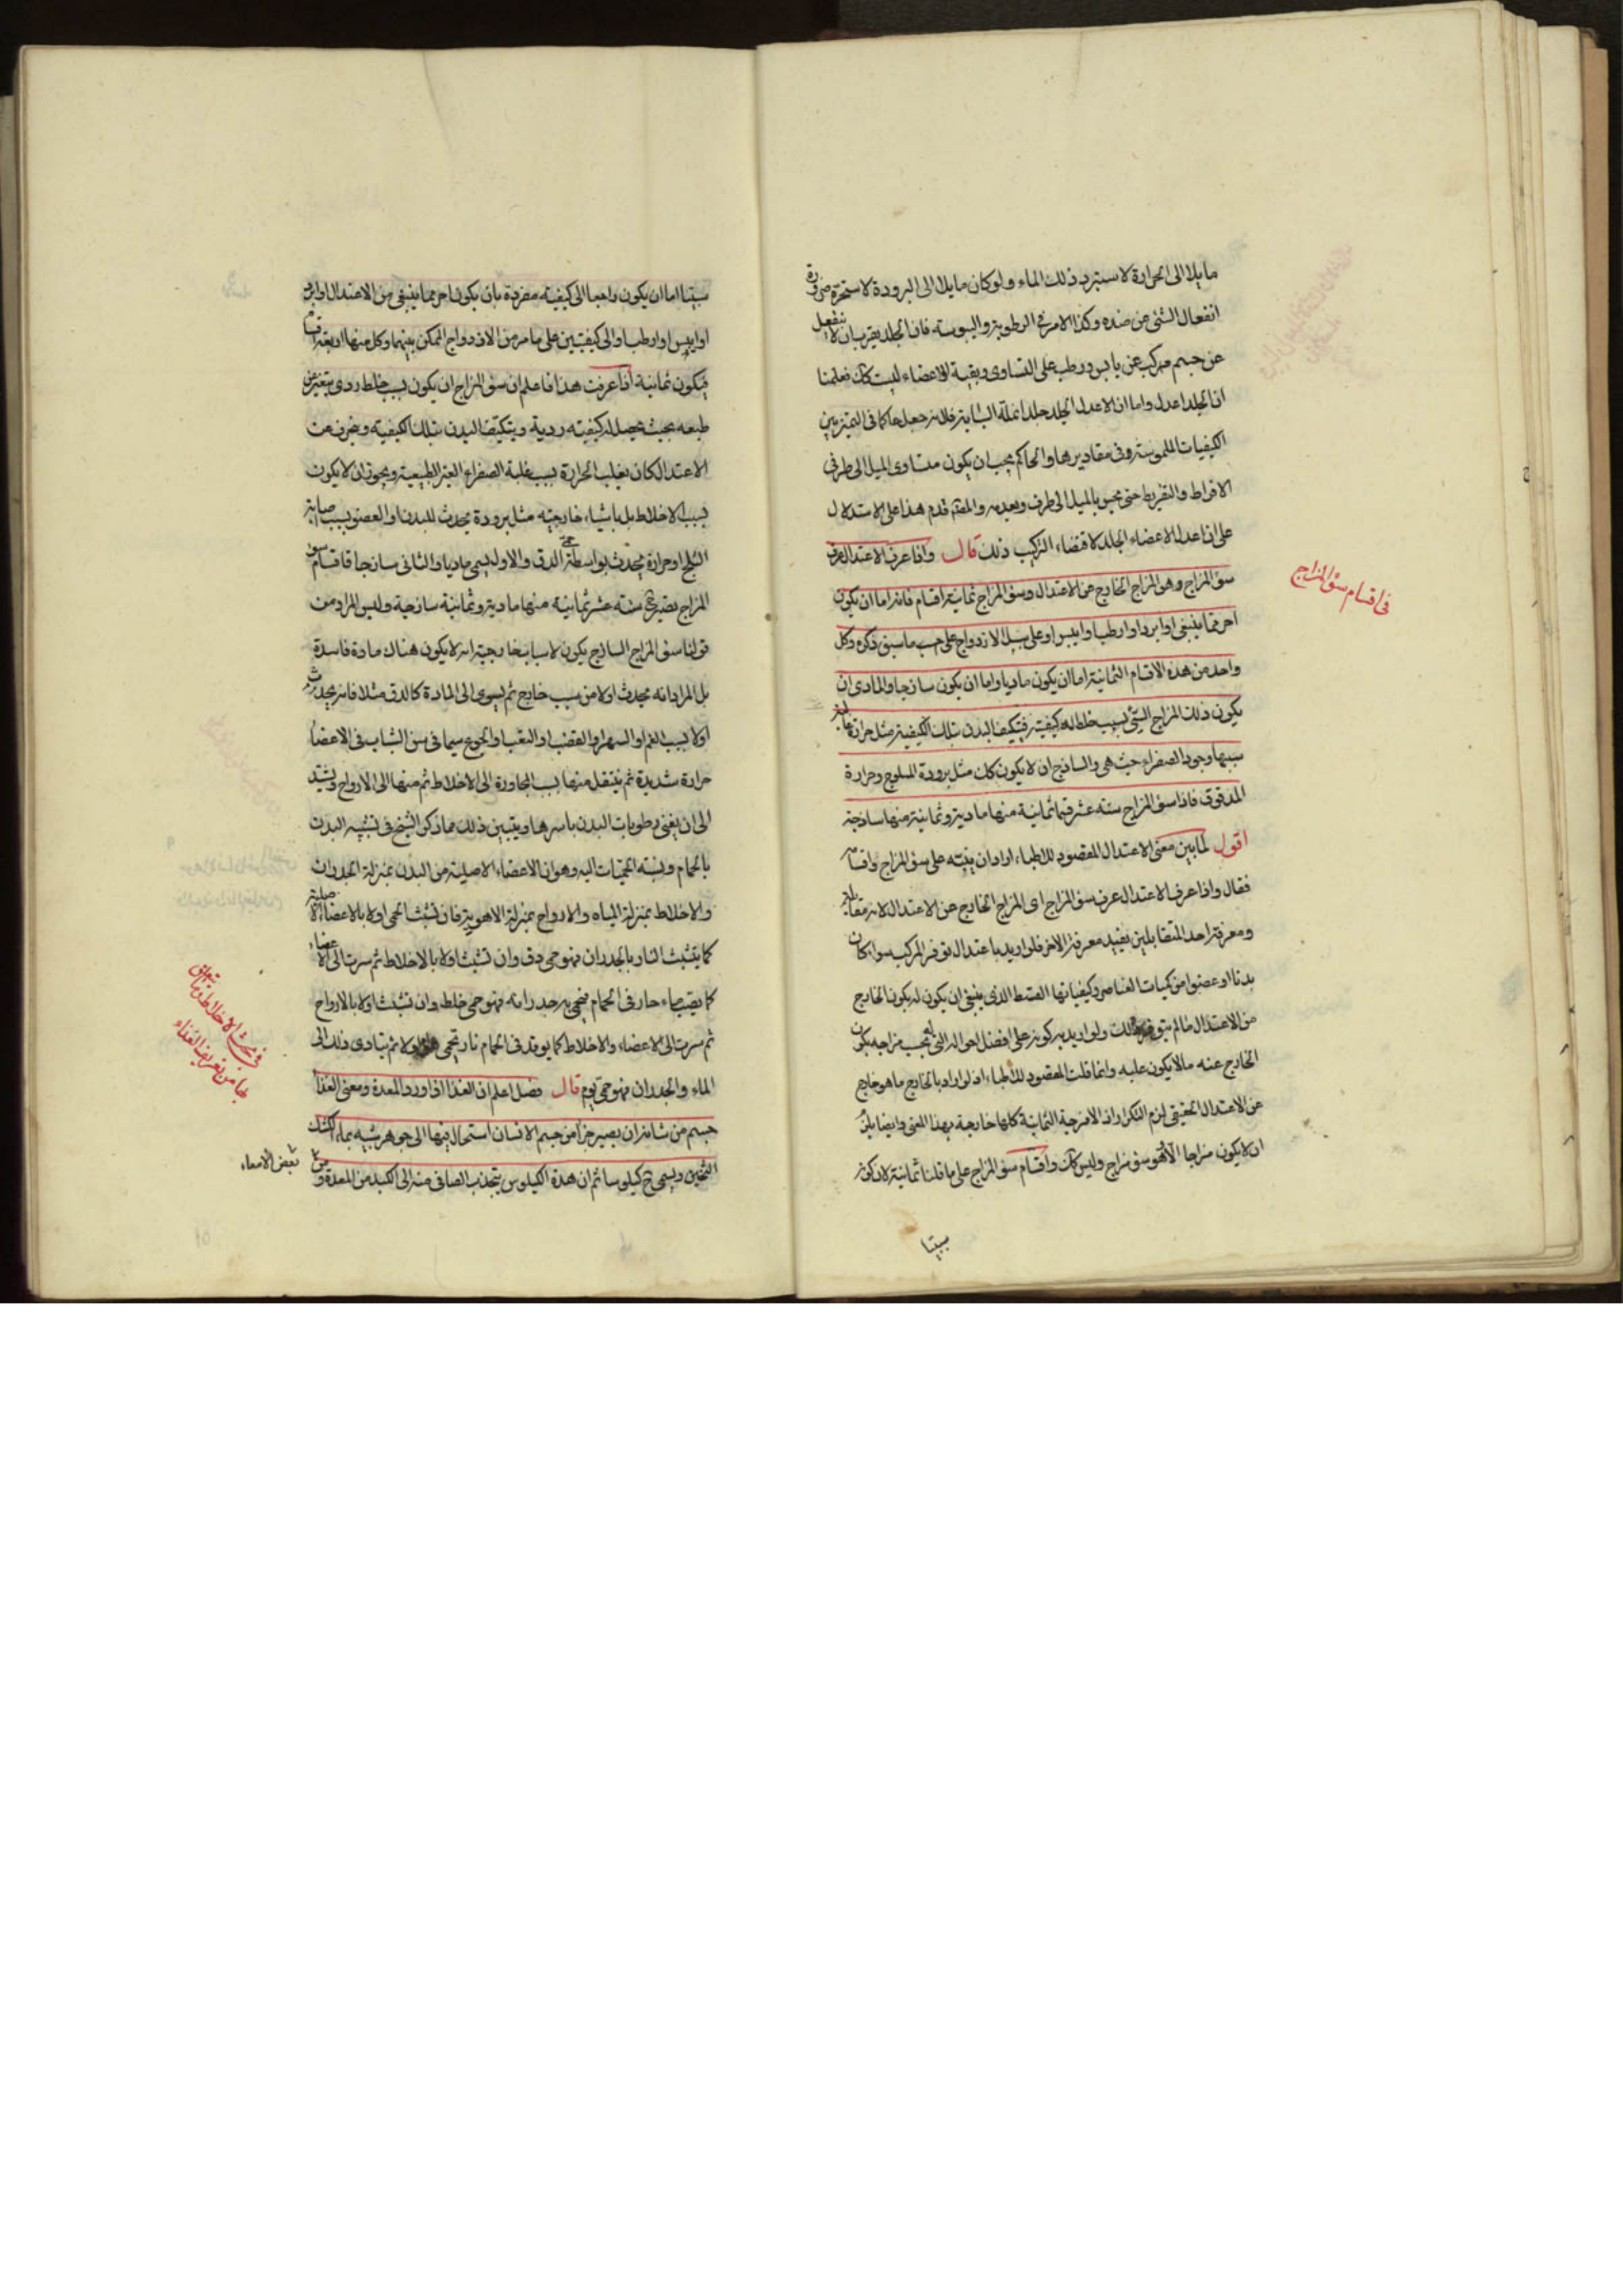 مايلا الى الحرارة لاستبرد ذلك الماء ولو كان مايلا الى البرودة لاستحره ضرورة
انفعال الشئ من ضده وكذا الامر فى الرطوبة واليبوسة فان الجلد يقرب ان لا ينفعل
عن جسم مركب عن يابس ورطب على التساوى وبقية الاعضاء ليست كك فعلمنا
ان الجلد اعدل واما ان الاعدل الجلد جلد انملة السبابة فلانه جعل حاكما فى التميز بين
الكيفيات الملموسة وفى مقاديرها والحاكم يجب ان يكون متساوى الميل الى طرفى
الافراط والتفريط حتى يحس بالميل الى طرف وبعده والمص قدم هذا على الاستدلال
على ان اعدل الاعضاء الجلد لاقتضاء التركيب ذلك قال واذا عرف الاعتدال عرف
سؤ المزاج وهو المزاج الخارج عن الاعتدال وسؤ المزاج ثمانية اقسام فانه اما ان يكون
احر مما ينبغى او ابرد او ارطب او ايبس او على سبيل الازدواج على حسب ما سبق ذكره وكل
واحد من هذه الاقسام الثمانية اما ان يكون ماديا واما ان يكون ساذجا والمادى ان
يكون ذلك المزاج السئ بسبب خلط له كيفية فيتكيف البدن بتلك الكيفية مثل حرارة غالبة
سببها وجود الصفراء حيث هى والساذج ان لا يكون كك مثل برودة المثلوج وحرارة
المدقوق فاذا سؤ المزاج ستة عشر قسما ثمانية منها مادية وثمانية منها ساذجة
اقول لما بين معنى الاعتدال المقصود للاطباء اراد ان ينبه على سؤ المزاج واقسامه
فقال واذا عرف الاعتدال عرف سؤ المزاج اى المزاج الخارج عن الاعتدال لانه مقابله
ومعرفة احد المتقابلين يفيد معرفة الاخر فلو اريد باعتدال توفر المركب سوا كان
بدنا او عضوا من كميات العناصر وكيفياتها القسط الذى ينبغى ان يكون له يكون الخارج
من الاعتدال ما لم يتوفر ذلك ولو اريد به كونه على افضل احواله التى له بحسب مزاجه يكون
الخارج عنه مالا يكون عليه وانما قلت المقصود للاطباء اذ لو اراد بالخارج ما هو خارج
عن الاعتدال الحقيقى لزم التكرار اذ الامزجة الثمانية كلها خارجة بهذا المعنى وايضا يلزم
ان لا يكون مزاجا الا وهو سؤ مزاج وليس كك واقسام سؤ المزاج على ما قلنا ثمانية لان كونه
سيئا
فى اقسام سؤ المزاج
سيئا اما ان يكون راجعا الى كيفية مفردة بان يكون احر مما ينبغى من الاعتدال او ابرد
او ايبس او ارطب او الى كيفيتين على ما مر من الازدواج الممكن بينهما وكل منها اربعة اقسام
فيكون ثمانية اذا عرفت هذا فاعلم ان سؤ المزاج ان يكون بسبب خلط ردى يتغير عن
طبعه بحيث يحصل له كيفية ردية ويتكيف البدن بتلك الكيفية ويخرج عن
الاعتدال كان يغلب الحرارة بسبب غلبة الصفراء الغير الطبيعية ويجوز ان لا يكون
بسبب الاخلاط بل باشياء خارجية مثل برودة يحدث للبدن او العضو بسبب اصابة
الثلج او حرارة يحدث بواسطة حمى الدق والاول يسمى ماديا والثانى ساذجا فاقسام سؤ
المزاج يصير ح ستة عشر ثمانية منها مادية وثمانية ساذجة وليس المراد من
قولنا سؤ المزاج الساذج يكون لاسباب خارجية انه لا يكون هناك مادة فاسدة
بل المراد انه يحدث اولا من سبب خارج ثم يسرى الى المادة كالدق مثلا فانه يحدث
اولا بسبب الغم او السهر او الغضب او التعب او الجوع سيما فى سن الشباب فى الاعضا
حرارة شديدة ثم ينتقل منها بسبب المجاورة الى الاخلاط ثم منها الى الارواح ويشتد
الى ان يفنى رطوبات البدن باسرها ويتبين ذلك مما ذكره الشيخ فى تشبيه البدن
بالحمام ونسبة الحميات اليه وهو ان الاعضاء الاصلية من البدن بمنزلة الجدران
والاخلاط بمنزلة المياه والارواح بمنزلة الاهوية فان تشبث الحمى اولا بالاعضاء الاصلية
كما يتشبث النار بالجدران فهو حمى دق وان تشبث اولا بالاخلاط ثم سرت الى الاعضاء
كما يصب ماء حار فى الحمام فيحمى به جدرانه فهو حمى خلط وان تشبث اولا بالارواح
ثم سرت الى الاعضاء والاخلاط كما يوقد فى الحمام نار تحمى هواه اولا ثم يتادى ذلك الى
الماء والجدران فهو حمى يوم قال فصل اعلم ان الغذا اذا ورد المعدة ومعنى الغذا
جسم من شانه ان يصير جزأ من جسم الانسان استحال فيها الى جوهر شبيه بماء الكشك
الثخين ويسمى ح كيلوسا ثم ان هذه الكيلوس ينجذب الصافى منه الى الكبد من المعدة ومن
بعض الامعاء
فى بحث الاخلاط وما يتعلق
بها من تعريف الغذاء